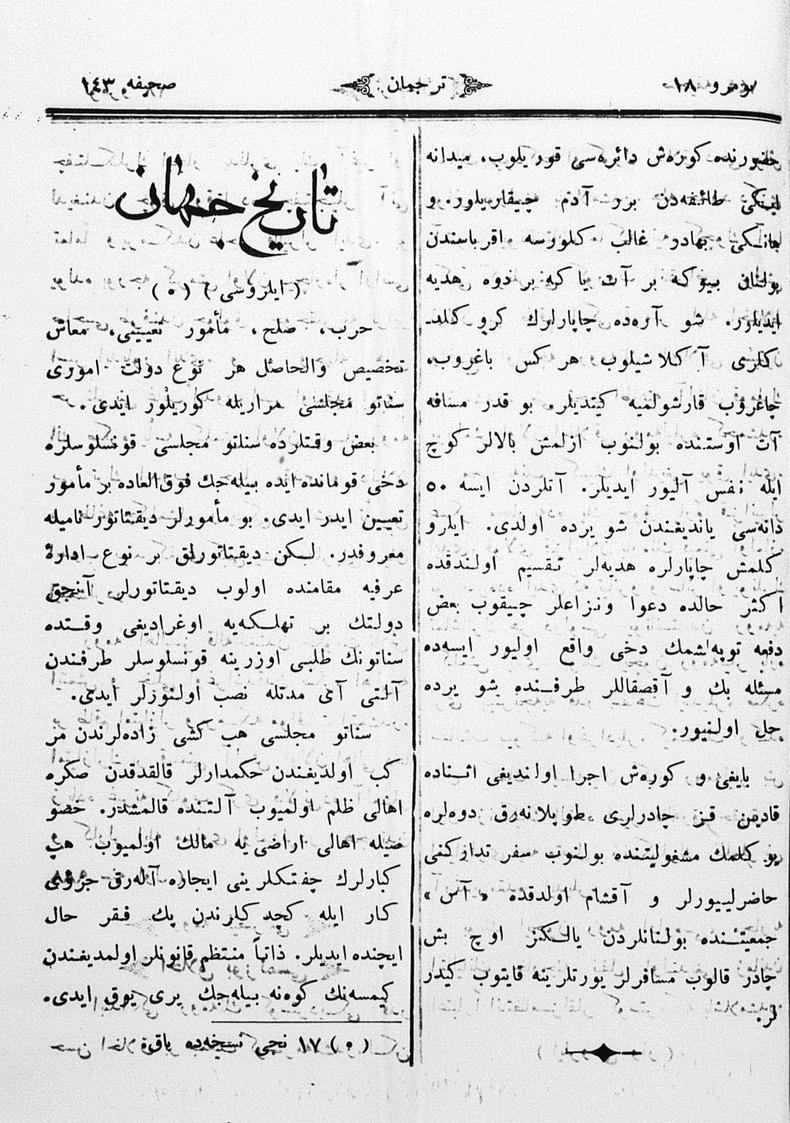 نومرو ۱۸
ترجمان
صحیفه ۱٤۳
حضورنده کوره‌ش دائره‌سی قوریلوب، میدانه
ایـکی طائفه‌دن برر آدم چیقاریلور. و
هانـکی بهادر غالب کلورسه اقرباسندن
بولنان بیوکه بر آت یا که بر دوه هدیه
ایدیلور. شو آره‌ده چاپارلرك کرو کلد
کلری آکلاشیلوب هر کس باغروب،
چاغروب قارشولمیه کیتدیلر. بو قدر مسافه
آت اوستنده بولنوب ازلمش بالالر کوچ
ایله نفس آلیور ایدیلر. آتلردن ایسه ٥٠
دانه‌سی یاندیغندن شو یرده اولدی. ایلرو
کلمش چاپارلره هدیه‌لر تقسیم اولندقده
اکثر حالده دعوا ونزاعلر چیقوب بعض
دفعه توپه‌لشمك دخی واقع اولیور ایسه‌ده
مسئله بك و آقصقاللر طرفـنده شو یرده
حل اولنیور.
بایغی و کوره‌ش اجرا اولندیغی اثـناده
قادین قـز چادرلری طوپلانه‌رق دوه‌لره
یوکلمك مشغولیتنده بولنوب سفر تدارکنی
حاضرلییورلر و آقشام اولدقده « آس »
جمعیتـنده بولنانلردن یالـکز اوچ بش
چادر قالوب مسافرلر یورتلرینه قایتوب کیدر
لر.
تاریخ جهان
(ایلروسی) (٥)
حرب، صلح، مأمور تعیینی، معاش
تخصیص والحاصل هر نوع دولت اموری
سناتو مجلسی قراریله کوریلور ایدی.
بعض وقتلرده سناتو مجلسی قونسلوسلره
دخی قومانده ایده بیله‌جك فوق‌العاده بر مأمور
تعیین ایدر ایدی. بو مأمورلر دیقتاتور نامیله
معروفدر. لـکن دیقتاتورلق بر نوع ادارۀ
عرفیه مقامنده اولوب دیقتاتورلر آنجق
دولتك بر تهلـکه‌یه اوغرادیغی وقـتده
سناتونك طلبی اوزرینه قونسلوسلر طرفندن
آلتی آی مدتله نصب اولنورلر ایدی.
سناتو مجلسی هب کشی زاده‌لرندن مر
کب اولدیغندن حکمدارلر قالقدقدن صکره
اهالی ظلم اولمیوب آلتنده قالمشدر. خصو
صیله اهالی اراضی‌یه مالك اولمیوب هپ
کبارلرك چفتکلرینی ایجاره آله‌رق جزوی
کار ایله کچدکلرندن پك فـقر حال
ایچنده ایدیلر. ذاتاً منتظم قانونلر اولمدیغندن
کیمسه‌نك کوه‌نه بیله‌جك یری یوق ایدی.
(٥) ۱۷ نجی نسخه‌ده باق.